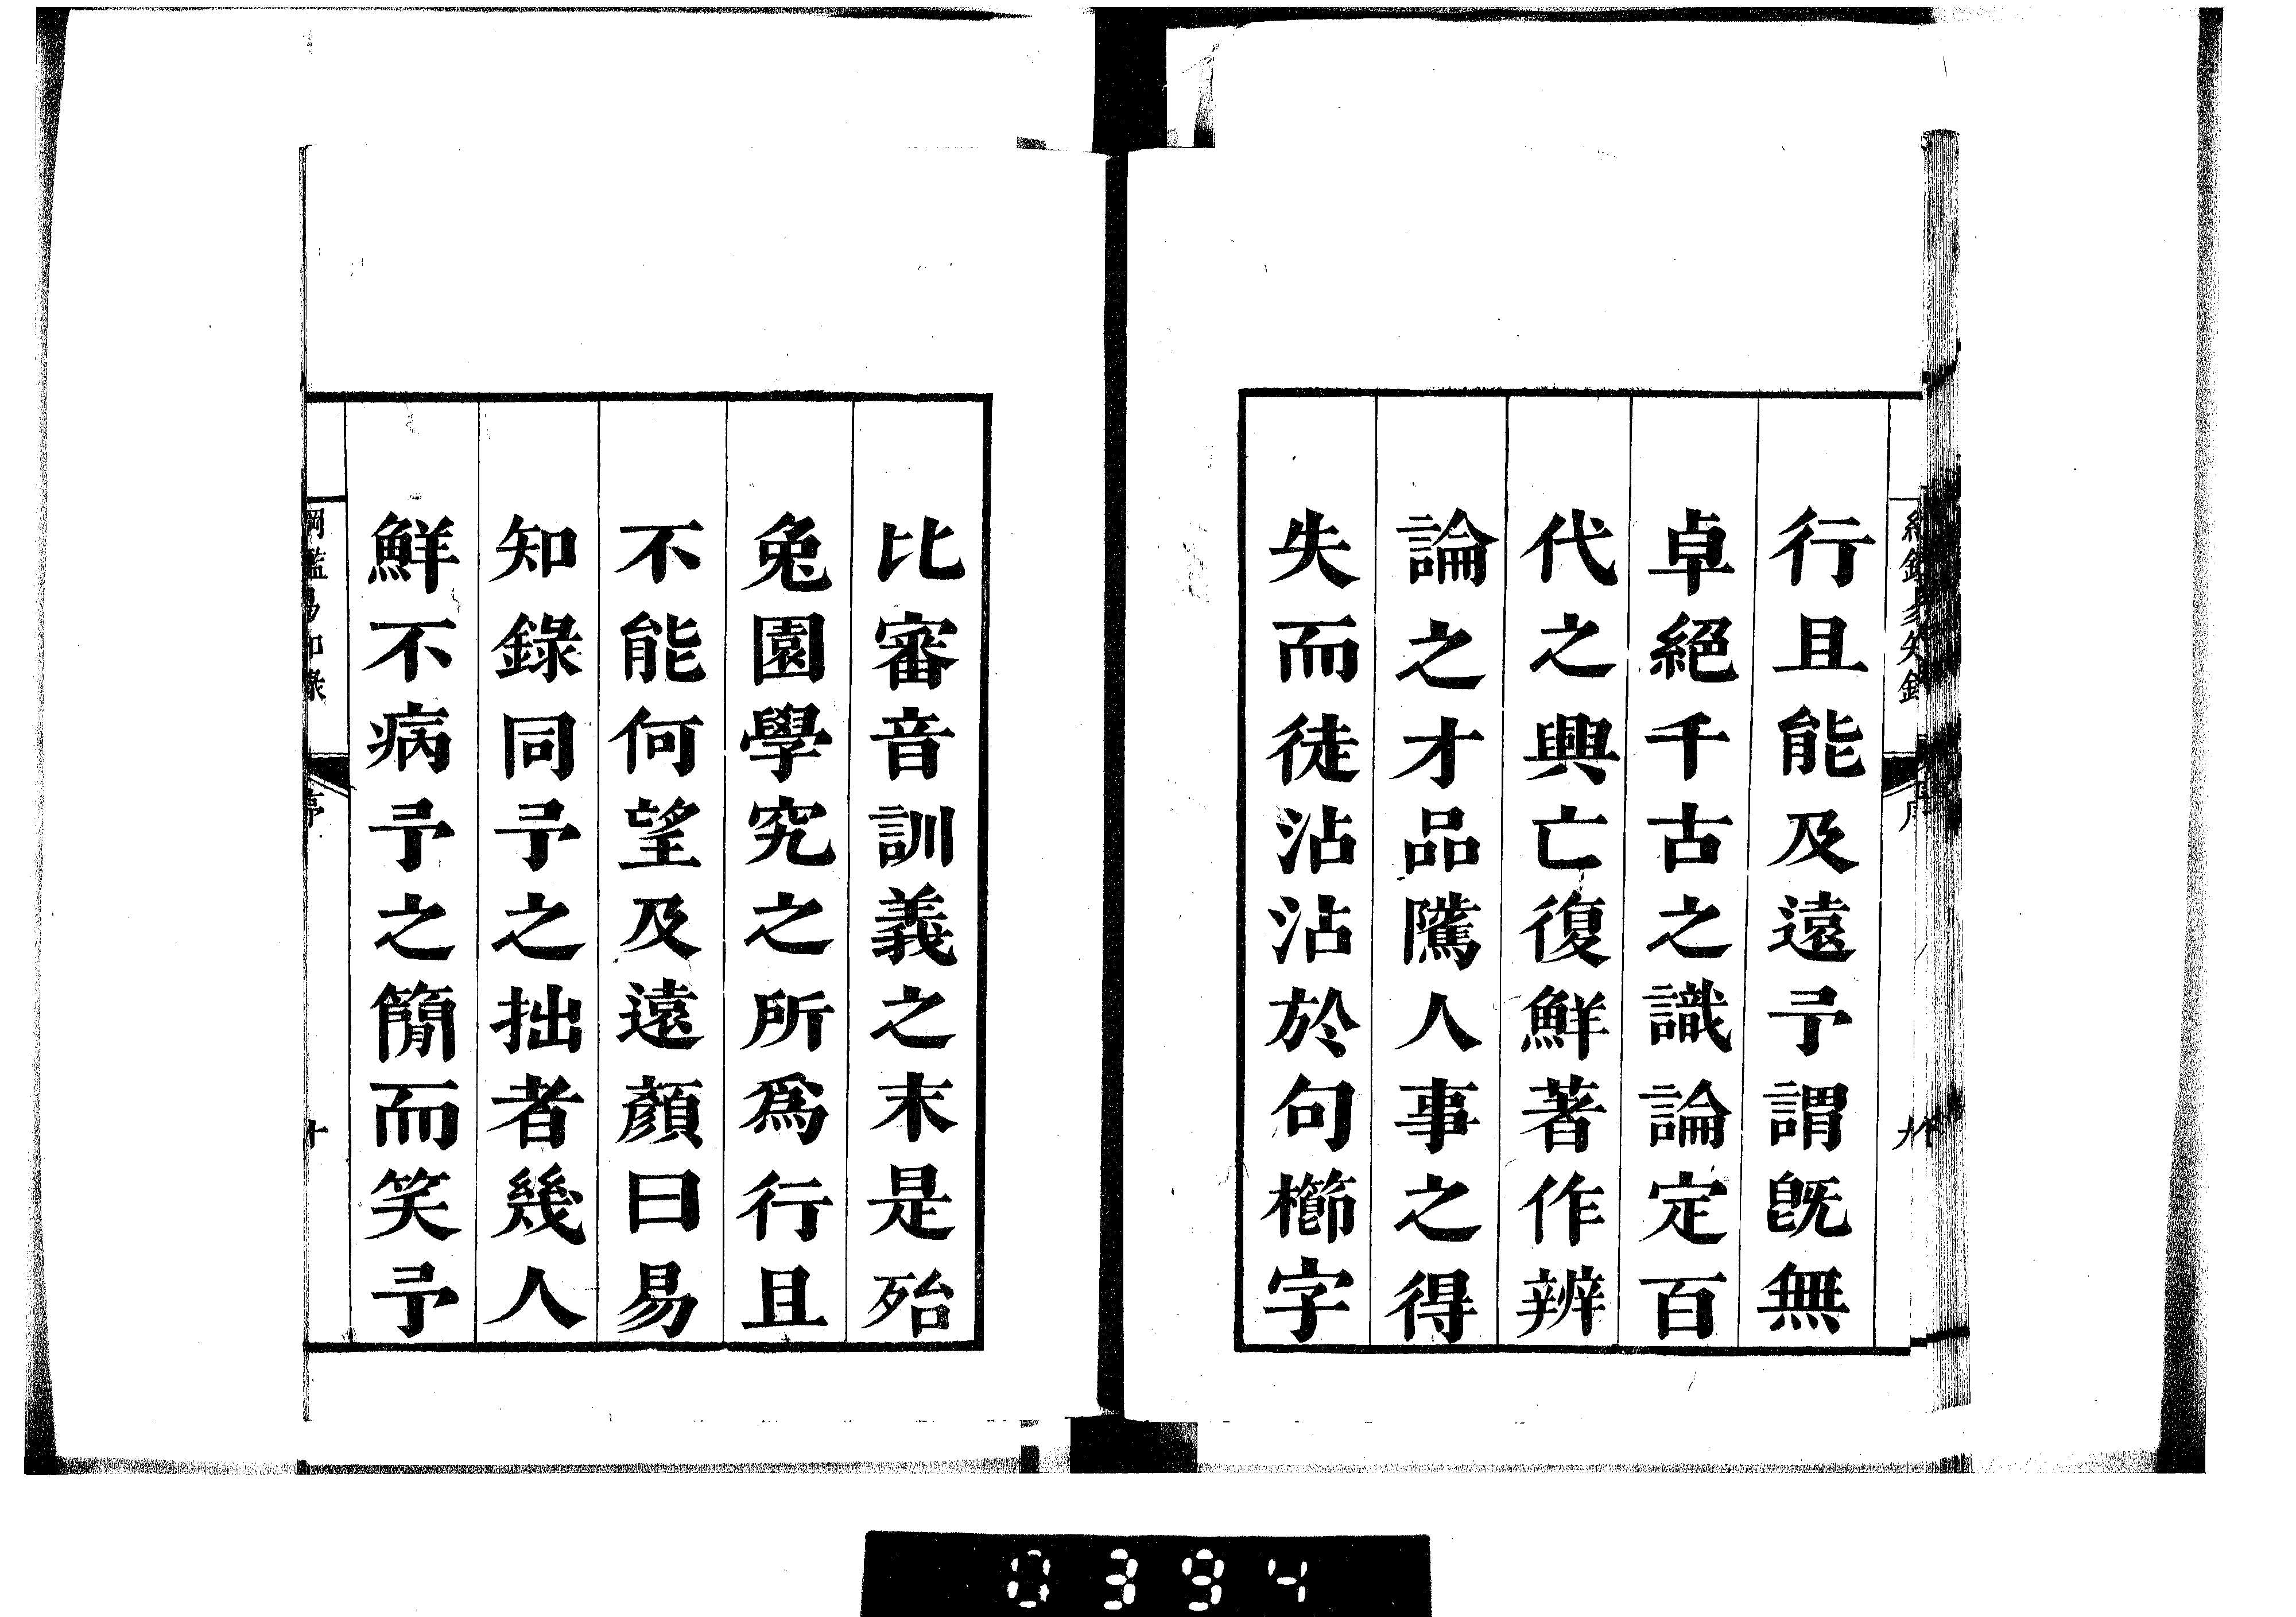 行且能及遠予謂旣無
卓絕千古之識論定百
代之興亡復鮮著作辨
論之才品隲人事之得
失而徒沾沾於句櫛字
比審音訓義之末是殆
兔園學究之所爲行且
不能何望及遠顏曰易
知錄同予之拙者幾人
鮮不病予之簡而笑予
綱鑑易知錄
序
十
0394